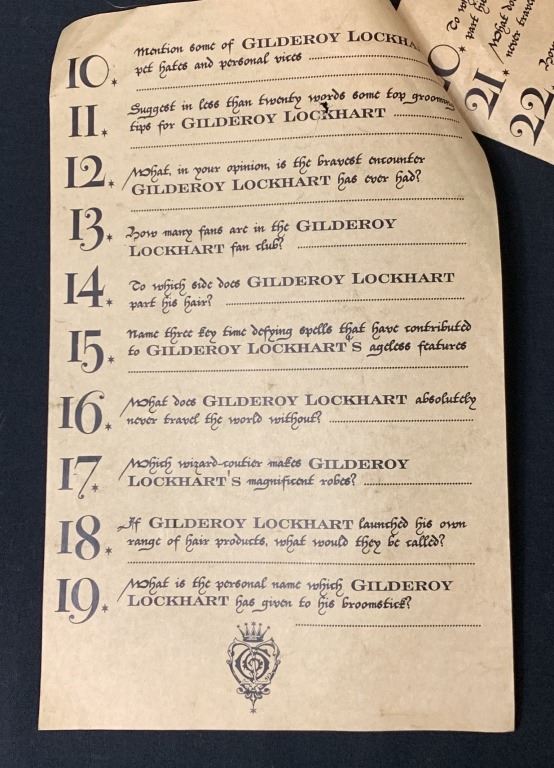 10. Mention some of GILDEROY LOCKHA
pet hates and personal vices
11. Suggest in less than twenty words some top grooming
tips for GILDEROY LOCKHART
12. What, in your opinion, is the bravest encounter
GILDEROY LOCKHART has ever had?
13. How many fans are in the GILDEROY
LOCKHART fan club?
14. To which side does GILDEROY LOCKHART
part his hair?
15. Name three key time defying spells that have contributed
to GILDEROY LOCKHART'S ageless features
16. What does GILDEROY LOCKHART absolutely
never travel the world without?
17. Which wizard-coutier makes GILDEROY
LOCKHART'S magnificent robes?
18. If GILDEROY LOCKHART launched his own
range of hair products, what would they be called?
19. What is the personal name which GILDEROY
LOCKHART has given to his broomstick?
0. To wh
part his
21. What do
never trave
22.